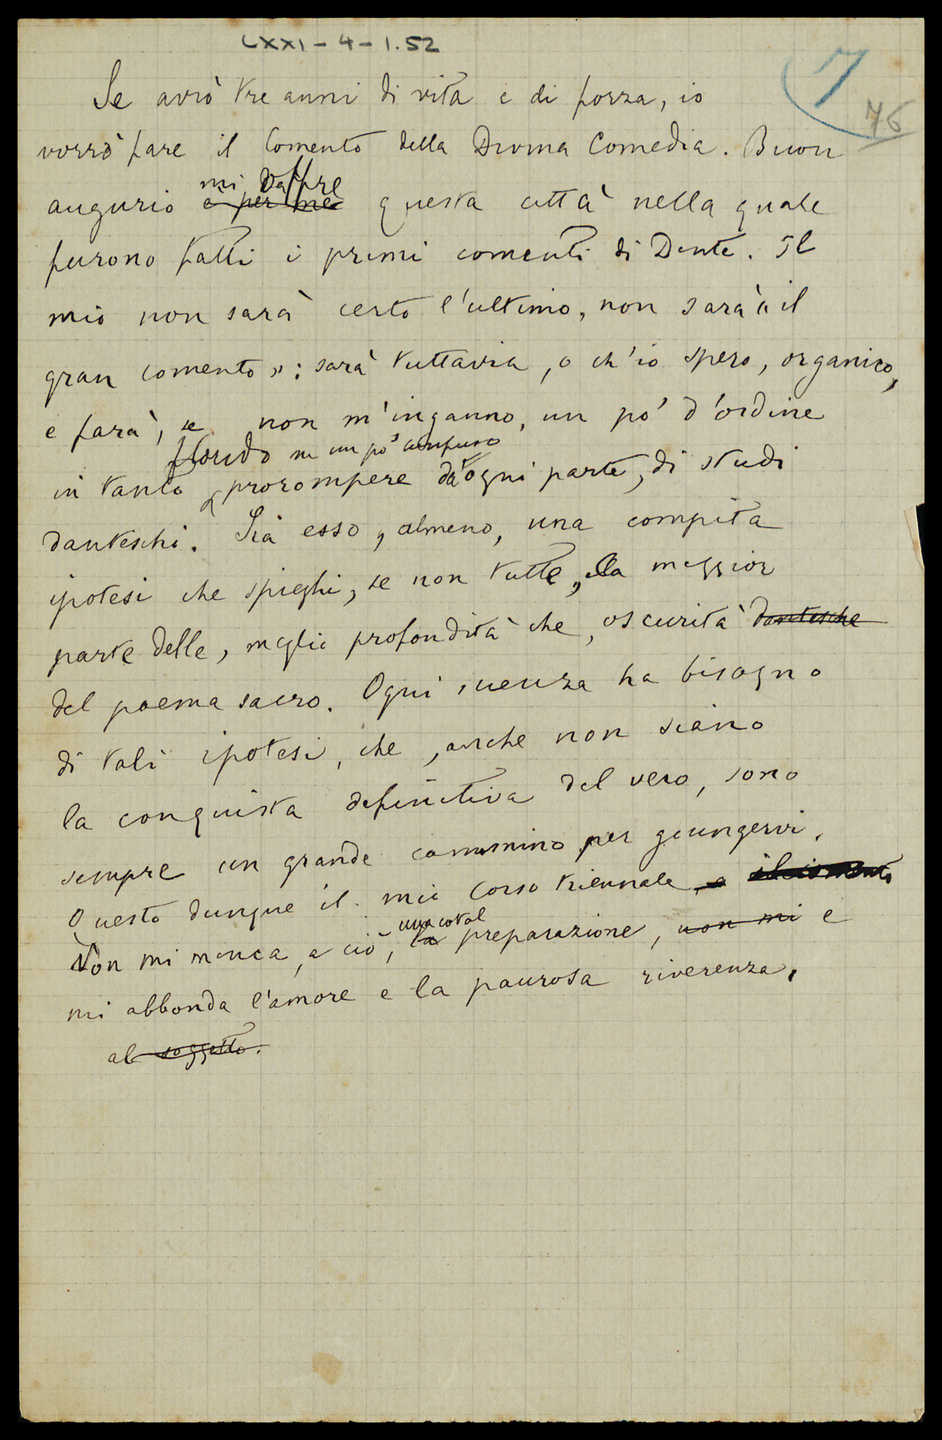 LXXI - 4 - 1.52
7
76
Se avrò tre anni di vita e di forza, io
vorrò fare il Comento della Divina Comedia. Buon
mi
augurio e per me questa città nella quale
furono fatti i primi comenti di Dante. Il
mio non sarà certo l'ultimo, non sarà "il
gran comento": sarà tuttavia, o ch'io spero, organico,
e farà, se non m'inganno, un po' d'ordine
florido ma un po' confuso
in tanto prorompere da ogni parte, di studi
danteschi. Sia esso, almeno, una compita
ipotesi che spieghi, se non tutte, la maggior
parte delle, meglio profondità che, oscurità dantesche
del poema sacro. Ogni scienza ha bisogno
di tali ipotesi, che, anche non siano
la conquista definitiva del vero, sono
sempre un grande cammino per giungervi.
Questo dunque il mio corso triennale e il comento
una cotal
Non mi manca, a ciò, la preparazione, non mi e
mi abbonda l'amore e la paurosa riverenza.
al soggetto.